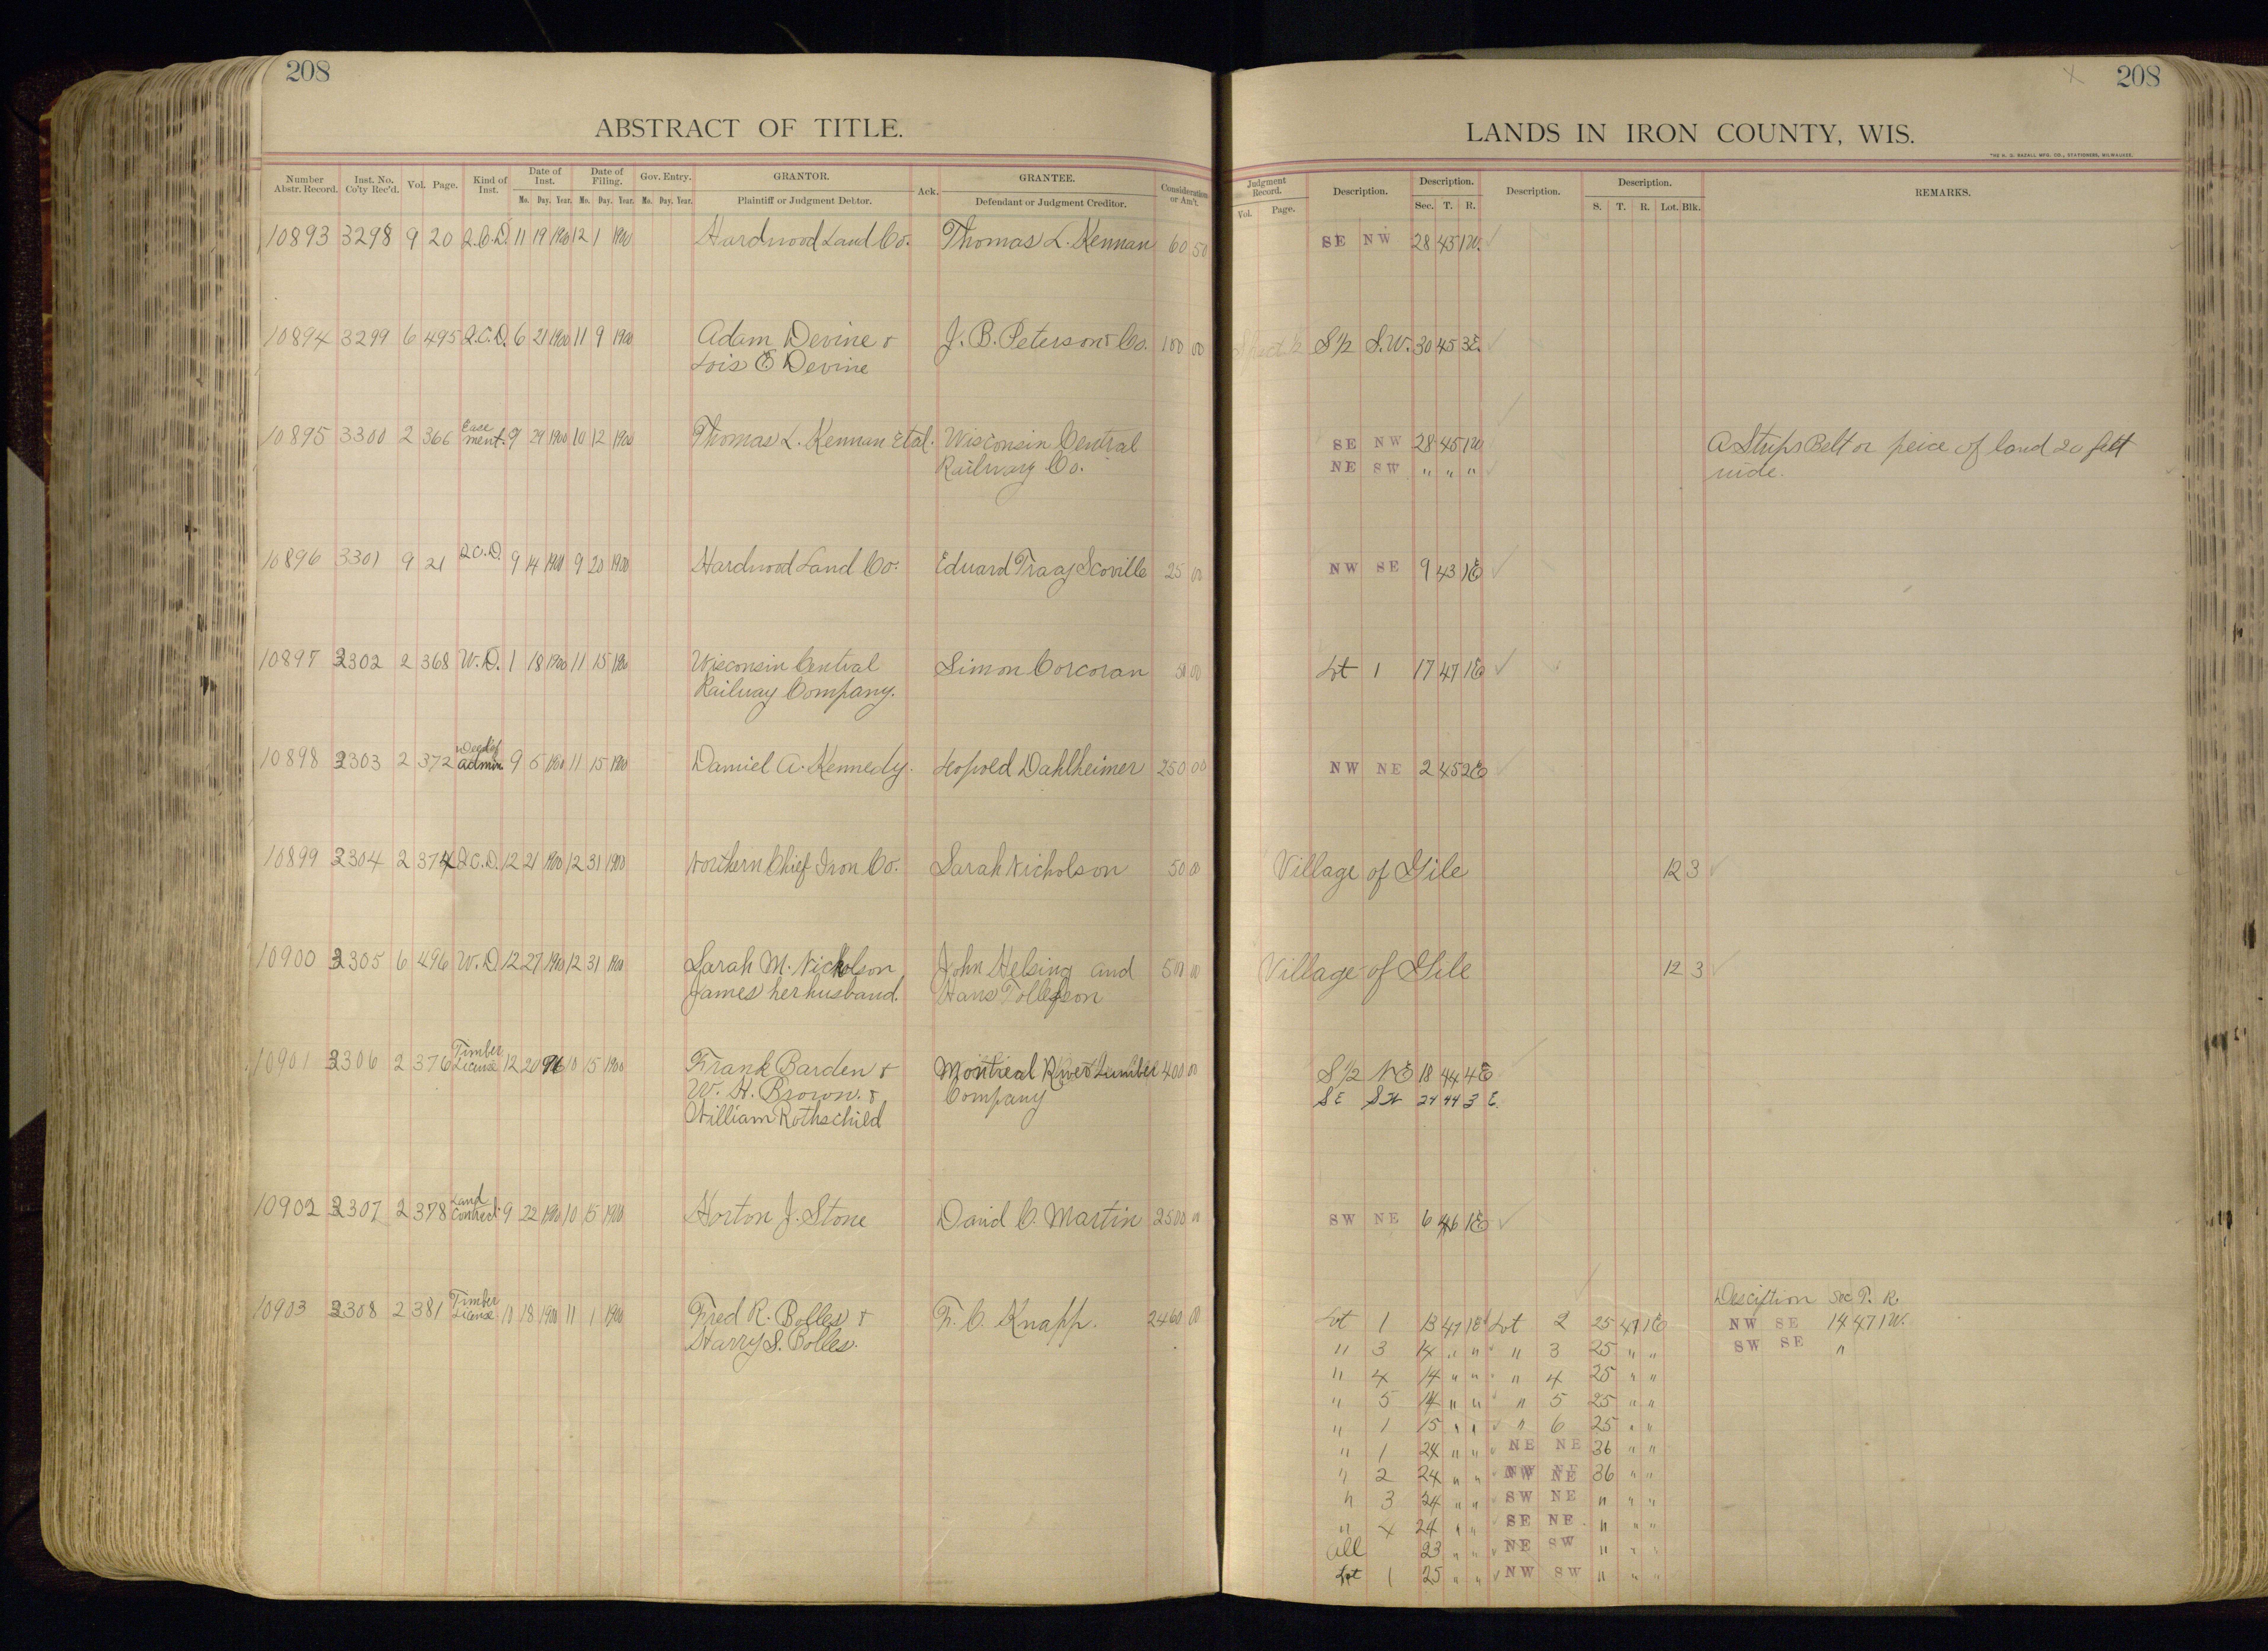 208
ABSTRACT OF TITLE.
Number Abstr. Record. Inst. No. Co'ty Rec'd. Vol. Page. Kind of Inst. Date of Inst. Date of Filing. Gov. Entry. GRANTOR. Ack. GRANTEE. Consideration or Am't.
Mo. Day. Year. Mo. Day. Year. Mo. Day. Year. Plaintiff or Judgment Debtor. Defendant or Judgment Creditor.
10893 3298 9 20 Q.C.D. 11 19 1900 12 1 1900 Hardwood Land Co. Thomas L. Kennan 60 50
10894 3299 6 495 Q.C.D. 6 21 1900 11 9 1900 Adam Devine & J. B. Peterson & Co. 100 00
Lois E Devine
10895 3300 2 366 Ease ment. 9 29 1900 10 12 1900 Thomas L. Kennan Etal. Wisconsin Central
Railway Co.
10896 3301 9 21 Q.C.D. 9 14 1900 9 20 1900 Hardwood Land Co. Eduard Traay Scoville 25 00
10897 3302 2 368 W.D. 1 18 1900 11 15 1900 Wisconsin Central Simon Corcoran 00
Railway Company.
10898 3303 2 372 Deed of admin 9 6 1900 11 15 1900 Daniel A. Kennedy. Leopold Dahlheimer 250 00
10899 3304 2 374 Q.C.D. 12 21 1900 12 31 1900 Northern Chief Iron Co. Sarah Nicholson 50 00
10900 3305 6 496 W.D. 12 27 1900 12 31 1900 Sarah M. Nicholson John Helsing and 500 00
James her husband. Hans Tollefson
10901 3306 2 376 Timber License 12 20 96 10 15 1900 Frank Barden & Montreal River Lumber 400 00
W. H. Brown. & Company
William Rothschild
10902 3307 2 378 Land Contract. 9 22 1900 10 15 1900 Horton J. Stone David C. Martin 2500 00
10903 3308 2 381 Timber License 10 18 1900 11 1 1900 Fred R. Bolles & F. C. Knapp. 2460 00
Harry S. Bolles.
X 208
LANDS IN IRON COUNTY, WIS.
THE H. G. RAZALL MFG. CO., STATIONERS, MILWAUKEE.
Judgment Record. Description. Description. Description. Description. REMARKS.
Vol. Page. Sec. T. R. S. T. R. Lot. Blk.
SE NW 28 45 1W.
S 1/2 S.W. 30 45 3E.
SE NW 28 45 1W A Strips Belt or peice of land 20 feet
NE SW " " " wide.
NW SE 9 43 1E
Lot 1 17 47 1E
NW NE 2 45 2E
Village of Gile 12 3
Village of Gile 12 3
S 1/2 NE 18 44 4E
SE SW 24 44 3 E.
SW NE 6 46 1E
Desciption Sec T. R.
Lot 1 13 47 1E Lot 2 25 47 1E NW SE 14 47 1W.
" 3 14 " " " 3 25 " " SW SE "
" 4 14 " " " 4 25 " "
" 5 14 " " " 5 25 " "
" 1 15 " " " 6 25 " "
" 1 24 " " NE NE 36 " "
" 2 24 " " NW NE 36 " "
" 3 24 " " SW NE " " "
" 4 24 " " SE NE " " "
all 23 " " NE SW " " "
Lot 1 25 " " NW SW " " "